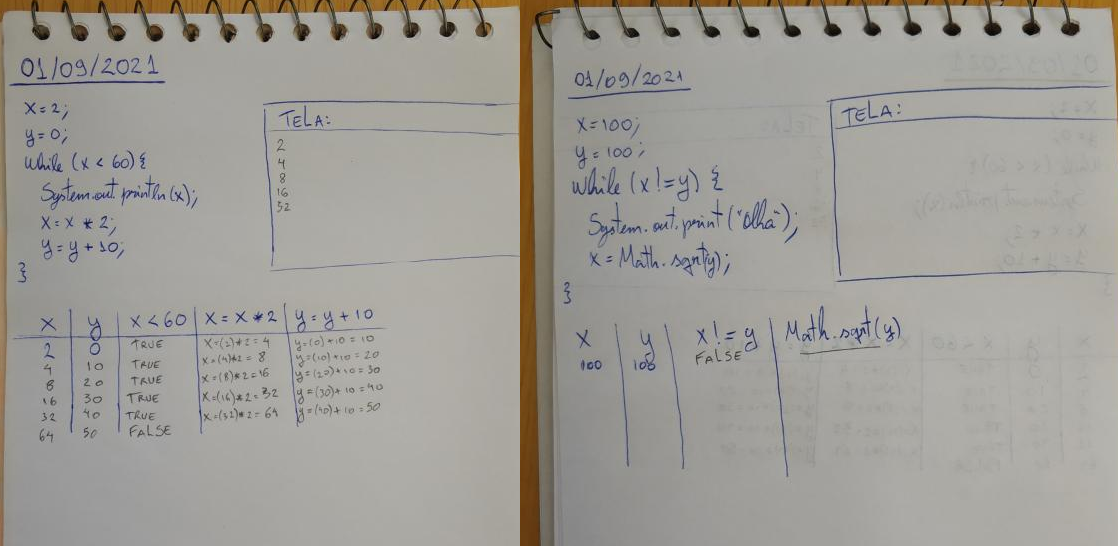 01/09/2021
x=2;
y=0;
while (x < 60){
System.out.println(x);
x=x*2;
y=y+10;
}
TELA:
2
4
8
16
32
x y x<60 x=x*2 y=y+10
2 0 TRUE x=(2)*2=4 y=(0)+10=10
4 10 TRUE x=(4)*2=8 y=(10)+10=20
8 20 TRUE x=(8)*2=16 y=(20)+10=30
16 30 TRUE x=(16)*2=32 y=(30)+10=40
32 40 TRUE x=(32)*2=64 y=(40)+10=50
64 50 FALSE
01/09/2021
x=100;
y=100;
while (x!=y) {
System.out.print("Olha");
x=Math.sqrt(y);
}
TELA:
x y x!=y Math.sqrt(y)
100 100 FALSE